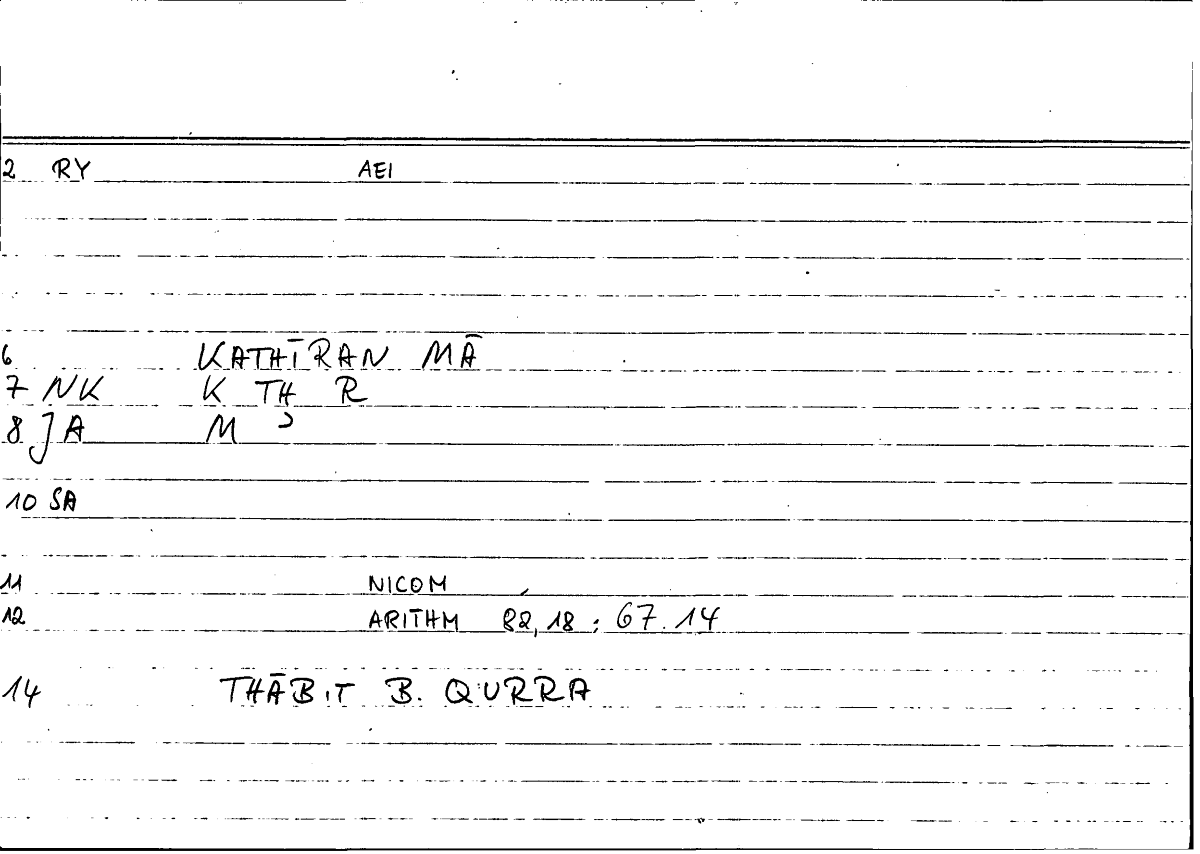 2 RY AEI
6 KATHĪRAN MĀ
7 NK K TH R
8 JA M ʾ
10 SA
11 NICOM
12 ARITHM 82,18 ; 67.14
14 THĀBIT B. QURRA